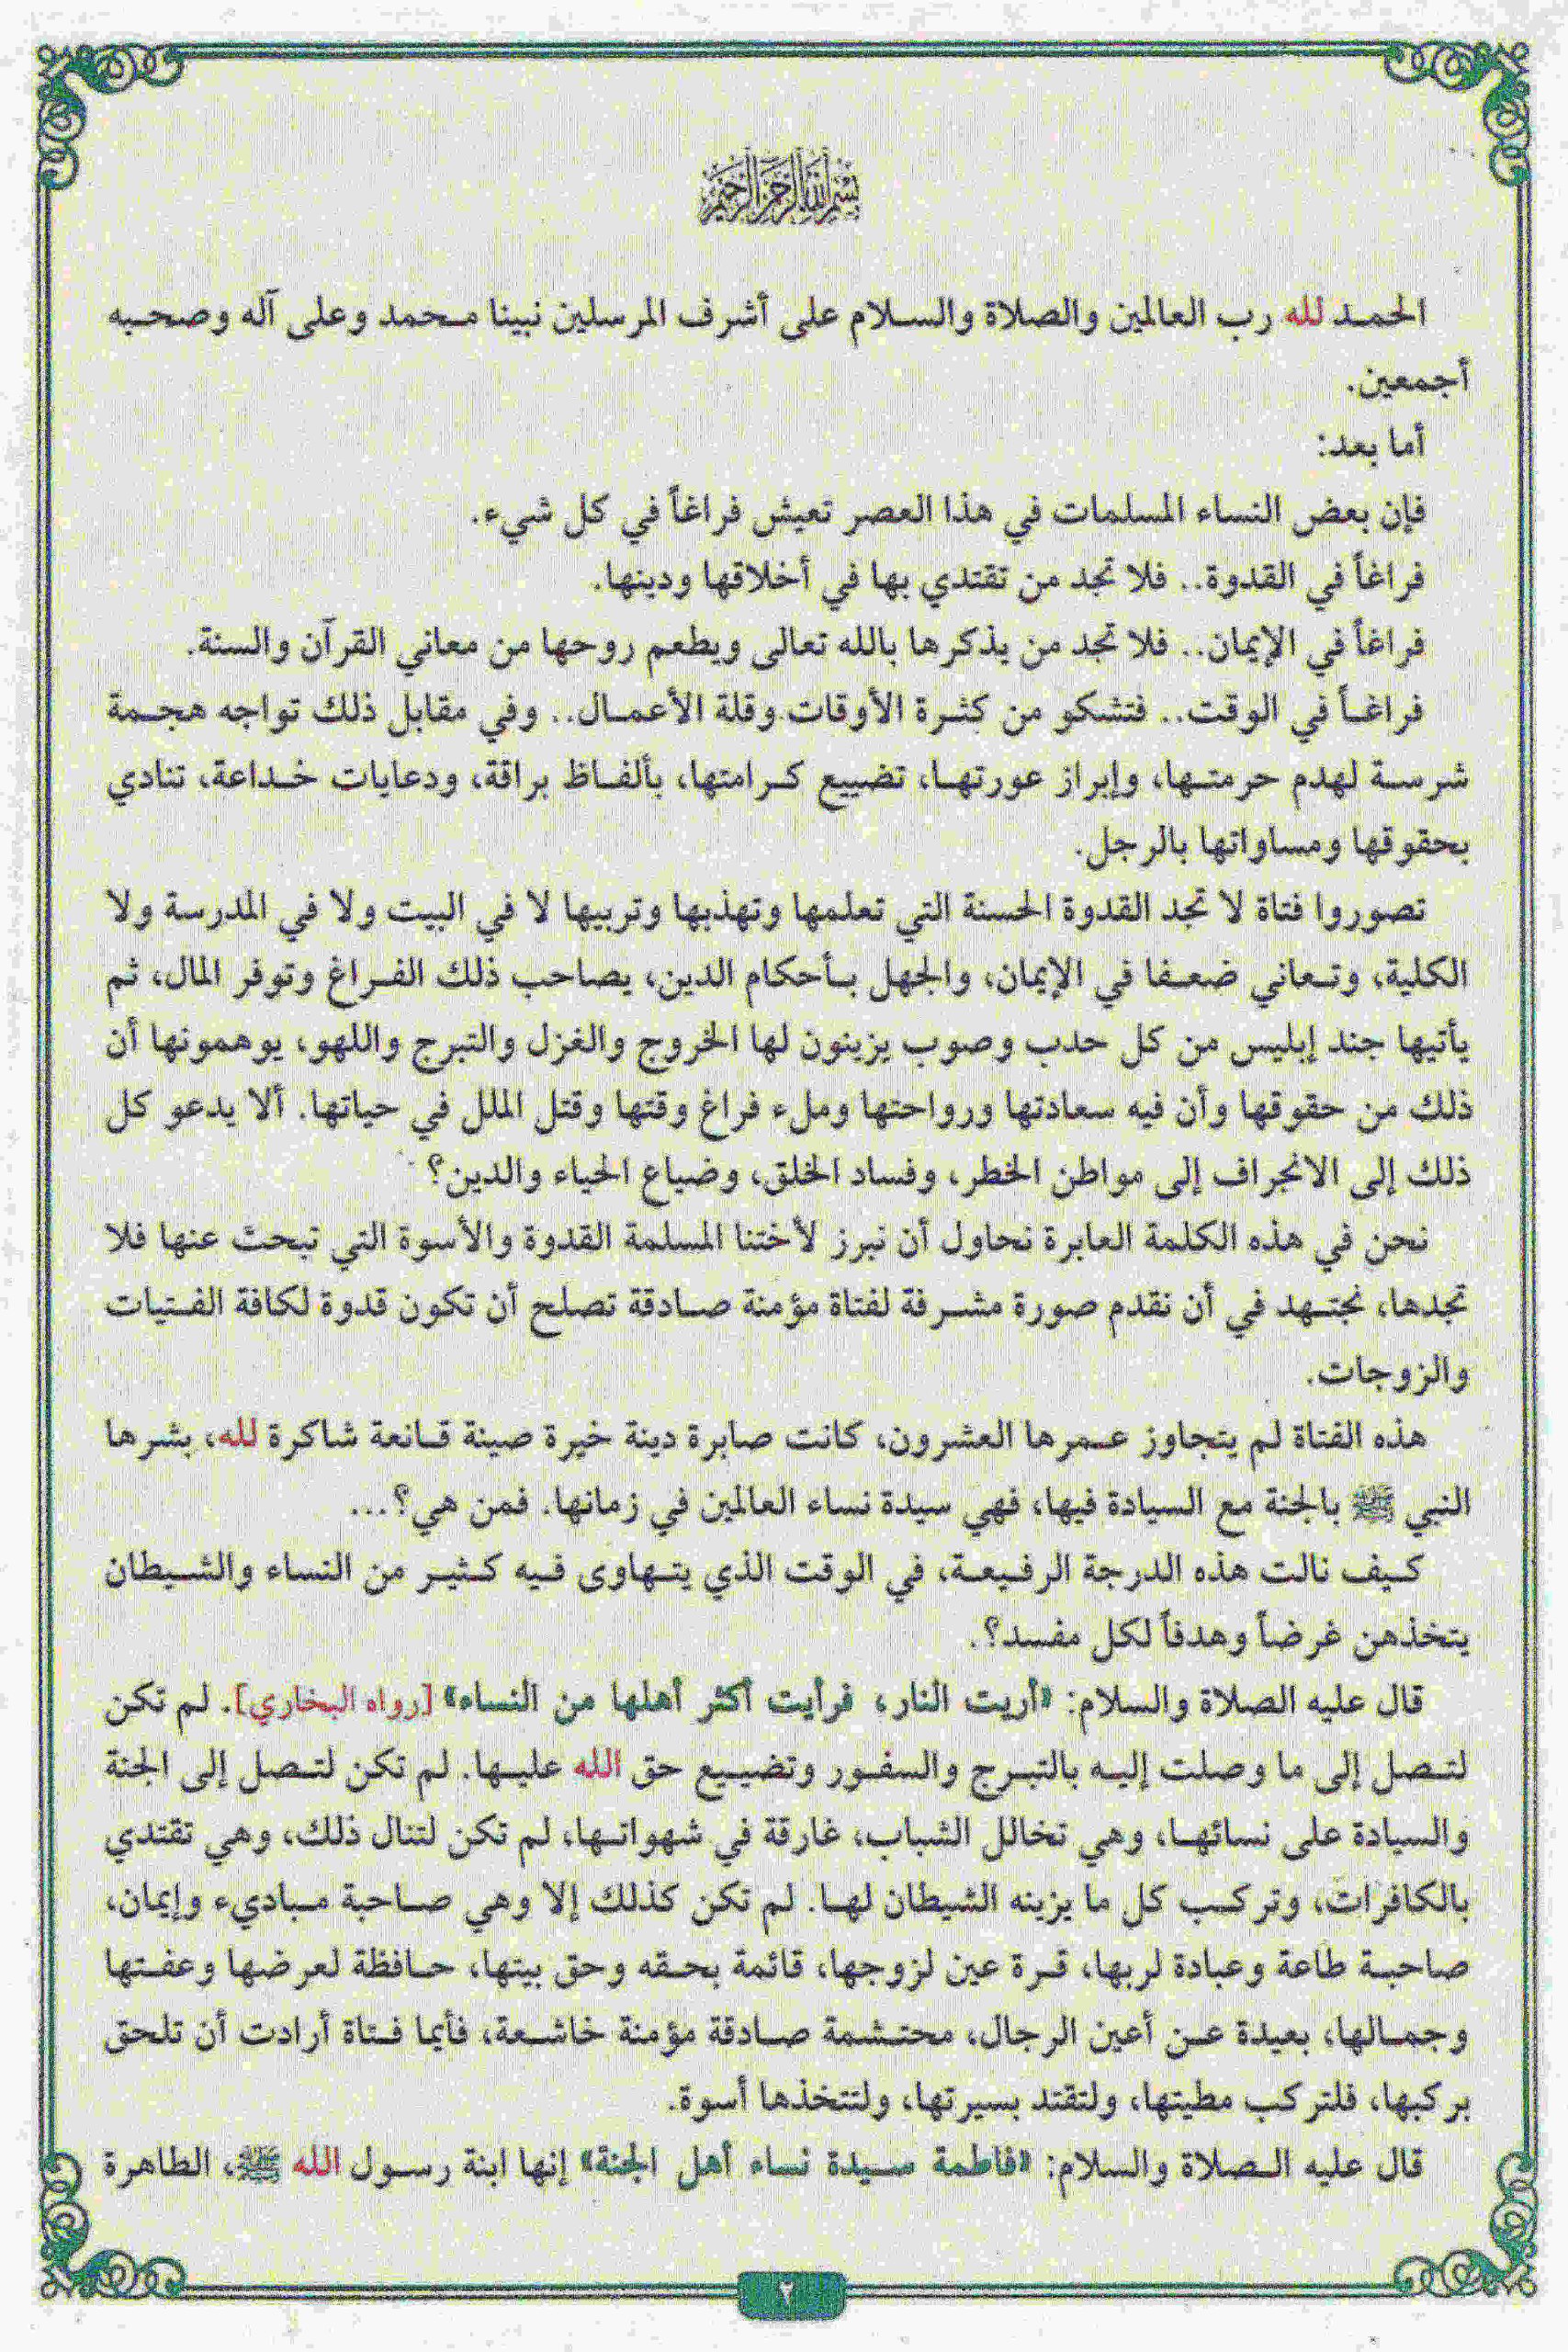 بسم الله الرحمن الرحيم
الحمد لله رب العالمين والصلاة والسلام على أشرف المرسلين نبينا محمد وعلى آله وصحبه
أجمعين.
أما بعد:
فإن بعض النساء المسلمات في هذا العصر تعيش فراغاً في كل شيء.
فراغاً في القدوة.. فلا تجد من تقتدي بها في أخلاقها ودينها.
فراغاً في الإيمان.. فلا تجد من يذكرها بالله تعالى ويطعم روحها من معاني القرآن والسنة.
فراغاً في الوقت.. فتشكو من كثرة الأوقات وقلة الأعمال.. وفي مقابل ذلك تواجه هجمة
شرسة لهدم حرمتها، وإبراز عورتها، تضييع كرامتها، بألفاظ براقة، ودعايات خداعة، تنادي
بحقوقها ومساواتها بالرجل.
تصوروا فتاة لا تجد القدوة الحسنة التي تعلمها وتهذبها وتربيها لا في البيت ولا في المدرسة ولا
الكلية، وتعاني ضعفا في الإيمان، والجهل بأحكام الدين، يصاحب ذلك الفراغ وتوفر المال، ثم
يأتيها جند إبليس من كل حدب وصوب يزينون لها الخروج والغزل والتبرج واللهو، يوهمونها أن
ذلك من حقوقها وأن فيه سعادتها ورواحتها وملء فراغ وقتها وقتل الملل في حياتها. ألا يدعو كل
ذلك إلى الانجراف إلى مواطن الخطر، وفساد الخلق، وضياع الحياء والدين؟
نحن في هذه الكلمة العابرة نحاول أن نبرز لأختنا المسلمة القدوة والأسوة التي تبحث عنها فلا
تجدها، نجتهد في أن نقدم صورة مشرفة لفتاة مؤمنة صادقة تصلح أن تكون قدوة لكافة الفتيات
والزوجات.
هذه الفتاة لم يتجاوز عمرها العشرون، كانت صابرة دينة خيرة صينة قانعة شاكرة لله، بشرها
النبي ﷺ بالجنة مع السيادة فيها، فهي سيدة نساء العالمين في زمانها. فمن هي؟...
كيف نالت هذه الدرجة الرفيعة، في الوقت الذي يتهاوى فيه كثير من النساء والشيطان
يتخذهن غرضاً وهدفاً لكل مفسد؟.
قال عليه الصلاة والسلام: «أريت النار، فرأيت أكثر أهلها من النساء» [رواه البخاري]. لم تكن
لتصل إلى ما وصلت إليه بالتبرج والسفور وتضييع حق الله عليها. لم تكن لتصل إلى الجنة
والسيادة على نسائها، وهي تخالل الشباب، غارقة في شهواتها، لم تكن لتنال ذلك، وهي تقتدي
بالكافرات، وتركب كل ما يزينه الشيطان لها. لم تكن كذلك إلا وهي صاحبة مباديء وإيمان،
صاحبة طاعة وعبادة لربها، قرة عين لزوجها، قائمة بحقه وحق بيتها، حافظة لعرضها وعفتها
وجمالها، بعيدة عن أعين الرجال، محتشمة صادقة مؤمنة خاشعة، فأيما فتاة أرادت أن تلحق
بركبها، فلتركب مطيتها، ولتقتد بسيرتها، ولتتخذها أسوة.
قال عليه الصلاة والسلام: «فاطمة سيدة نساء أهل الجنة» إنها ابنة رسول الله ﷺ، الطاهرة
٢